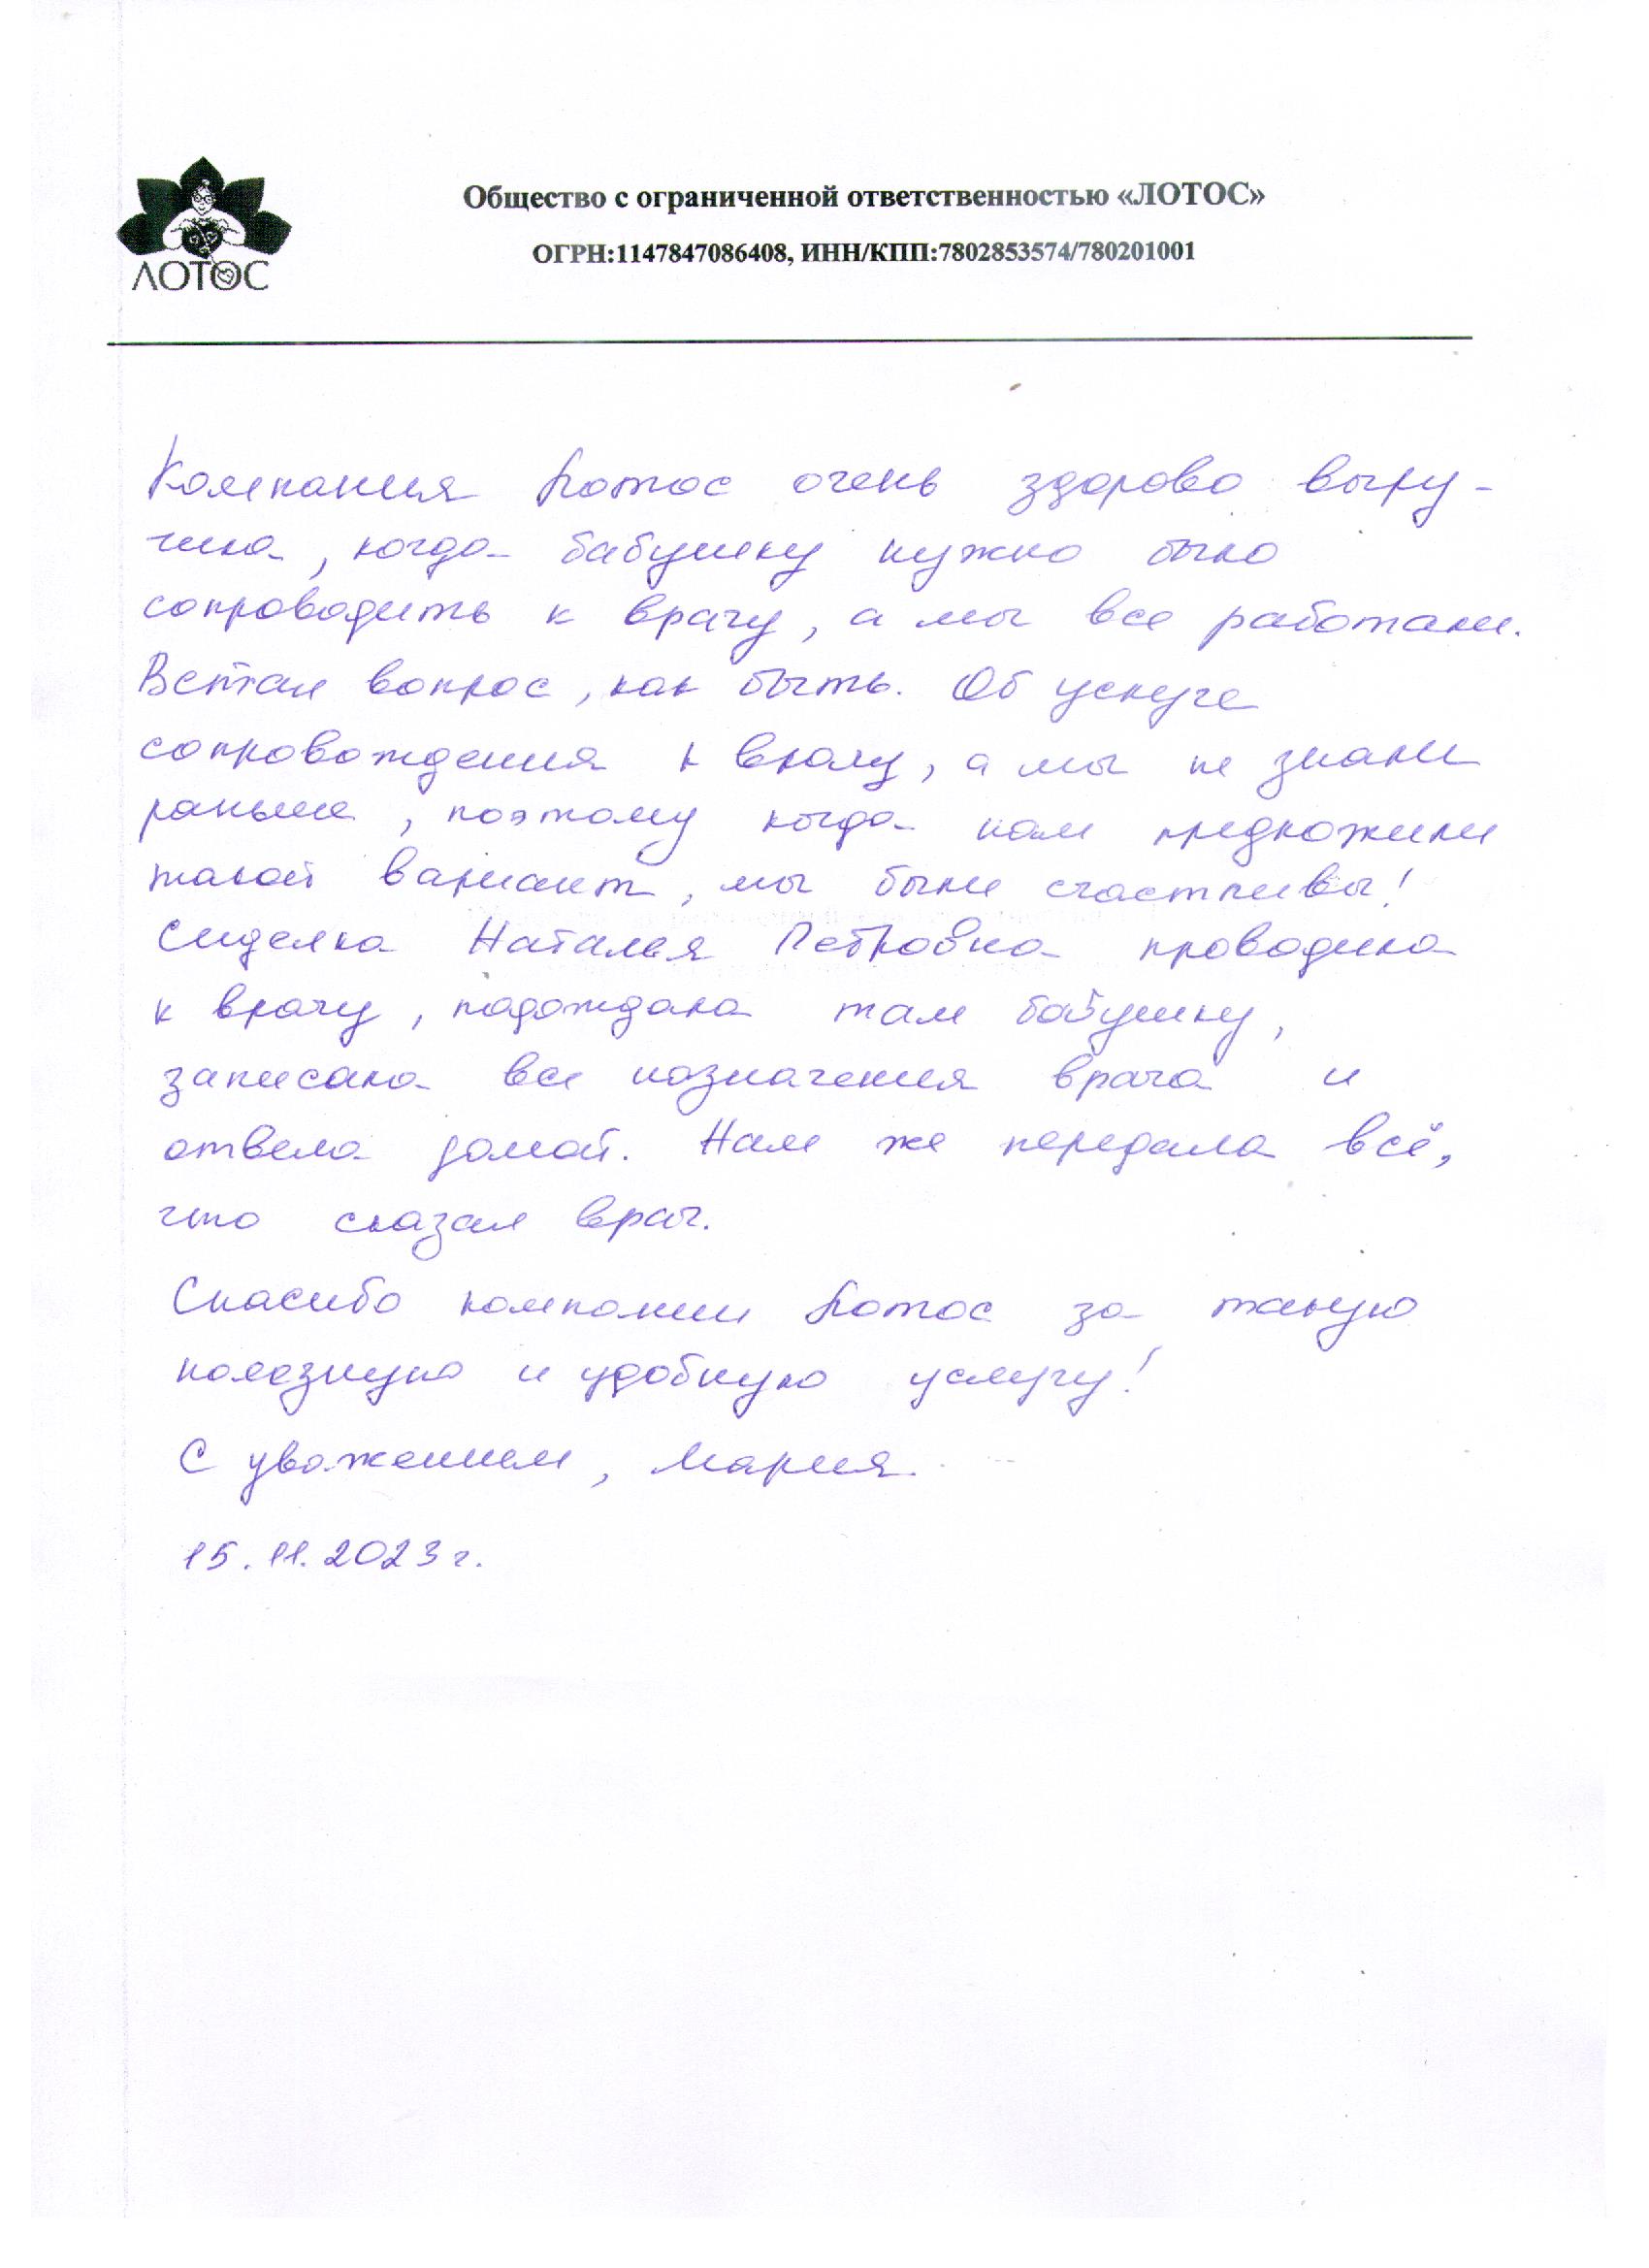 ЛОТОС
Общество с ограниченной ответственностью «ЛОТОС»
ОГРН:1147847086408, ИНН/КПП:7802853574/780201001
Компания Лотос очень здорово выру-
чила, когда бабушку нужно было
сопроводить к врачу, а мы все работали.
Встал вопрос, как быть. Об услуге
сопровождения к врачу, а мы не знали
раньше, поэтому когда нам предложили
такой вариант, мы были счастливы!
Сиделка Наталья Петровна проводила
к врачу, подождала там бабушку,
записала все назначения врача и
отвела домой. Нам же передала всё,
что сказал врач.
Спасибо компании Лотос за такую
полезную и удобную услугу!
С уважением, Мария.
15.11.2023 г.